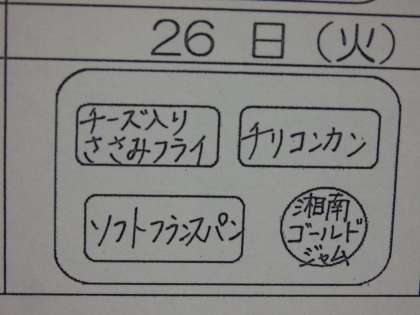 26 日 (火)
チーズ入り
ささみフライ
チリコンカン
ソフトフランスパン
湘南
ゴールド
ジャム